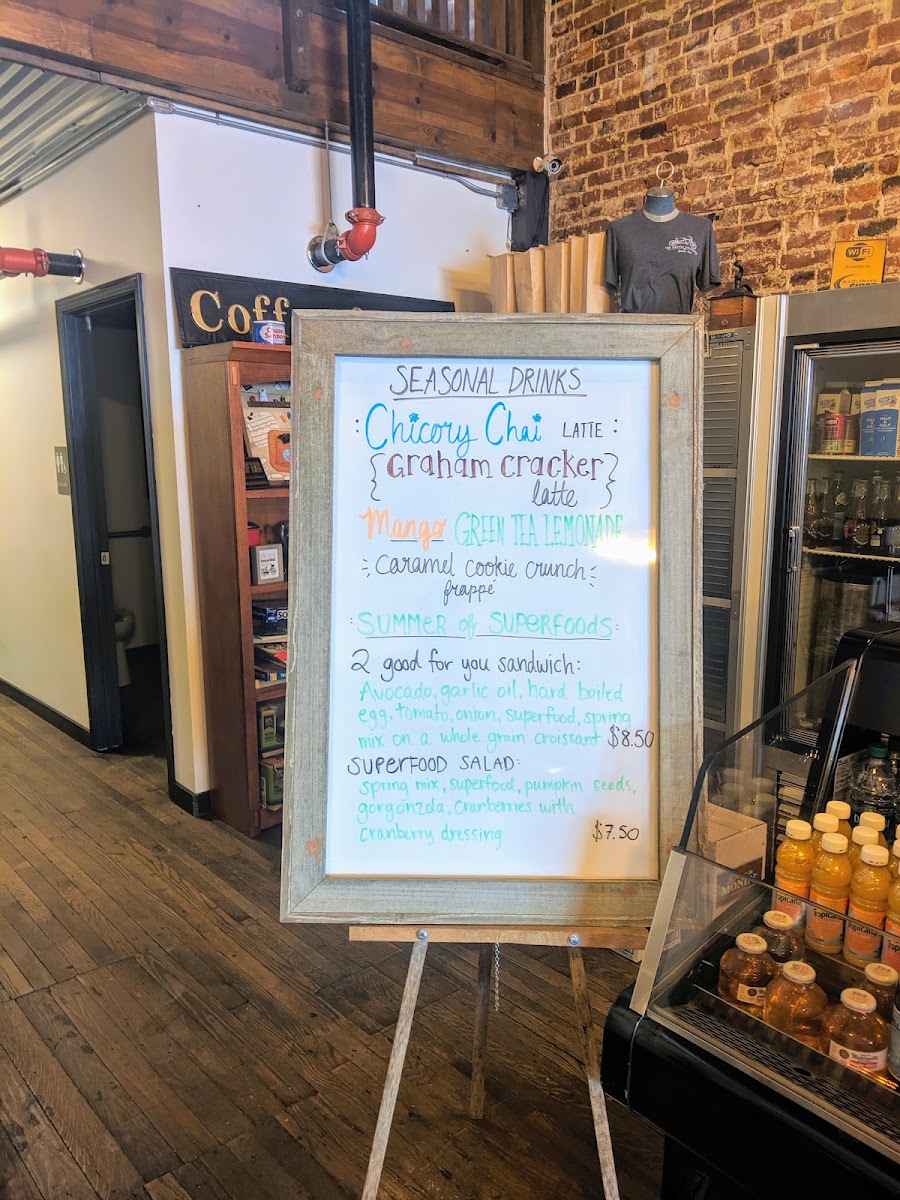 Coff
WiFi
SEASONAL DRINKS
: Chicory Chai LATTE :
{Graham Cracker}
latte
Mango GREEN TEA LEMONADE
Caramel cookie crunch
frappé
SUMMER of SUPERFOODS:
2 good for you sandwich:
Avocado, garlic oil, hard boiled
egg, tomato, onion, superfood, spring
mix on a whole grain croissant $8.50
SUPERFOOD SALAD:
spring mix, superfood, pumpkin seeds,
gorgonzola, cranberries with
cranberry dressing $7.50
HALF & HALF
MONIN
Tropicana
Tropicana
Tropicana